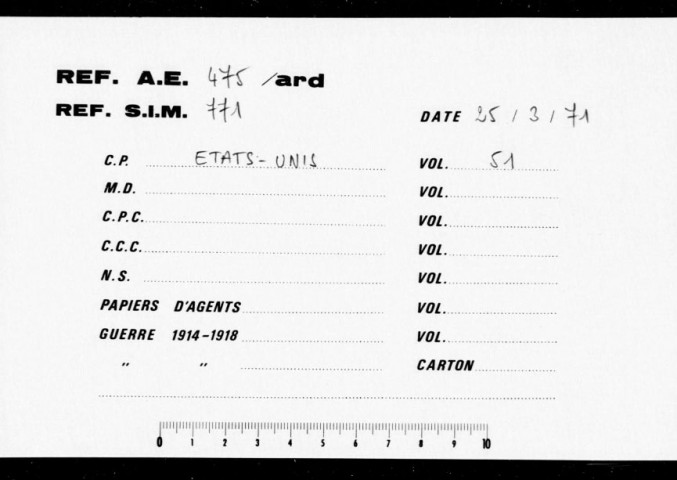 REF. A.E. 475 /ard
REF. S.I.M. 771
DATE 25 / 3 / 71
C.P. ETATS-UNIS VOL. 51
M.D. VOL.
C.P.C. VOL.
C.C.C. VOL.
N.S. VOL.
PAPIERS D'AGENTS VOL.
GUERRE 1914-1918 VOL.
" " CARTON
0 1 2 3 4 5 6 7 8 9 10